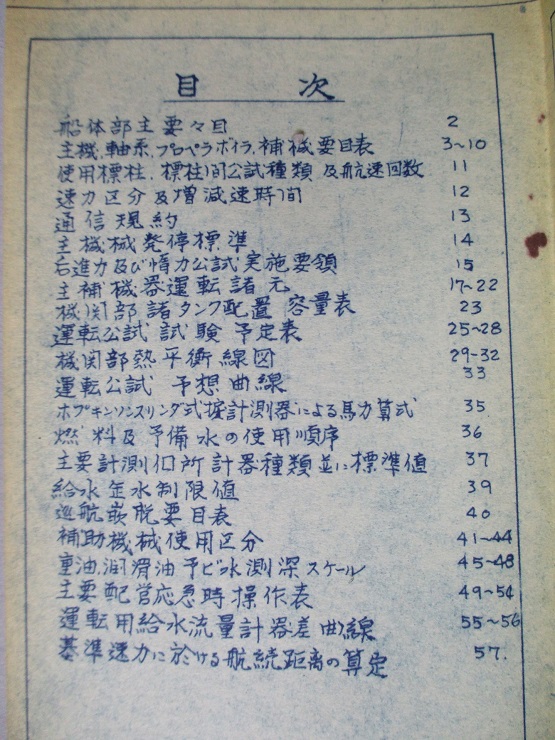 目次
船体部主要々目 2
主機、軸系、プロペラボイラ、補機要目表 3~10
使用標柱、標柱間公試種類及航速回数 11
速力区分及増減速時間 12
通信規約 13
主機械発停標準 14
后進力及び惰力公試実施要領 15
主補機器運転諸元 17~22
機関部諸タンク配置 容量表 23
運転公試試験予定表 25~28
機関部熱平衡線図 29-32
運転公試 予想曲線 33
ホプキンソンスリング式捩計測器による馬力算式 35
燃料及予備水の使用順序 36
主要計測個所計器種類並に標準値 37
給水缶水制限値 39
巡航嵌脱要目表 40
補助機械使用区分 41~44
重油、潤滑油予ビ水測深スケール 45~48
主要配管応急時操作表 49~54
運転用給水流量計器差曲線 55~56
基準速力に於ける航続距離の算定 57.